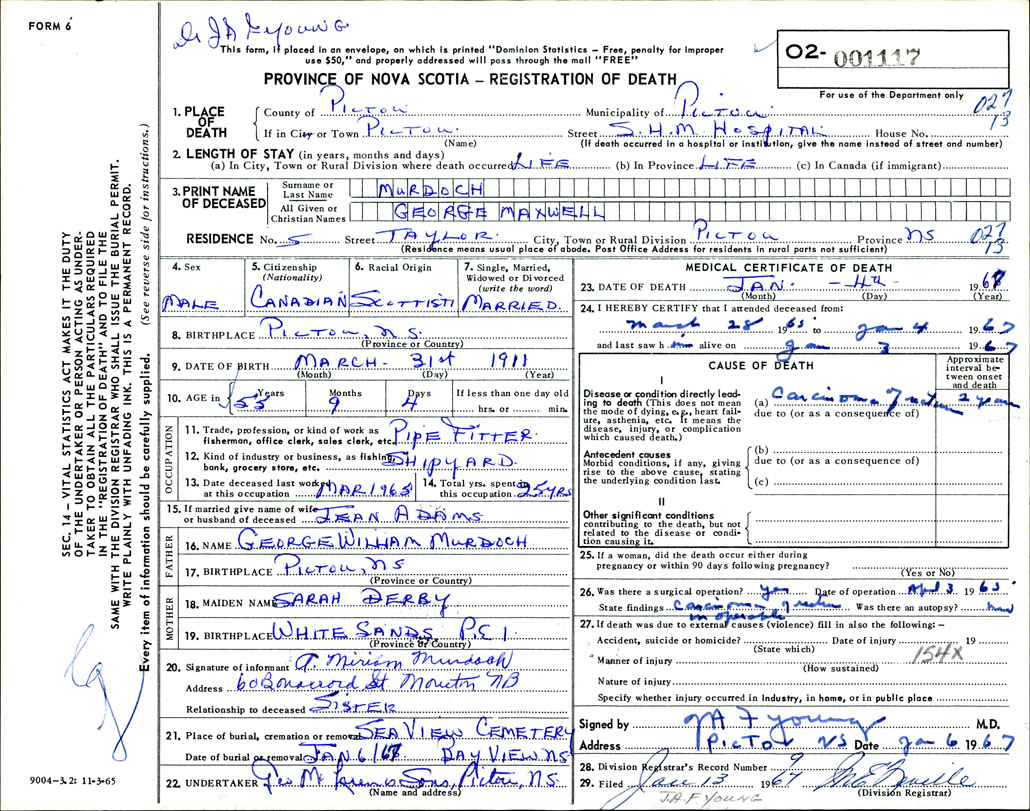 FORM 6
Dr JA F YOUNG
This form, if placed in an envelope, on which is printed "Dominion Statistics – Free, penalty for improper
use $50," and properly addressed will pass through the mail "FREE"
O2- 001117
For use of the Department only
PROVINCE OF NOVA SCOTIA – REGISTRATION OF DEATH
027
13
1. PLACE OF DEATH
County of PICTOU Municipality of PICTOU
If in City or Town PICTOU. Street S.H.M. HOSPITAL House No.
(Name) (If death occurred in a hospital or institution, give the name instead of street and number)
2. LENGTH OF STAY (in years, months and days)
(a) In City, Town or Rural Division where death occurred LIFE (b) In Province LIFE (c) In Canada (if immigrant)
3. PRINT NAME OF DECEASED
Surname or Last Name MURDOCH
All Given or Christian Names GEORGE MAXWELL
RESIDENCE No. 5 Street TAYLOR City, Town or Rural Division PICTOU Province NS 027
13
(Residence means usual place of abode. Post Office Address for residents in rural parts not sufficient)
4. Sex
MALE
5. Citizenship (Nationality)
CANADIAN
6. Racial Origin
SCOTTISH
7. Single, Married, Widowed or Divorced (write the word)
MARRIED.
8. BIRTHPLACE PICTOU, N.S.
(Province or Country)
9. DATE OF BIRTH MARCH - 31st 1911
(Month) (Day) (Year)
10. AGE in Years 55 Months 9 Days 4 If less than one day old
hrs. or min.
OCCUPATION
11. Trade, profession, or kind of work as fisherman, office clerk, sales clerk, etc. PIPE FITTER.
12. Kind of industry or business, as fishing, bank, grocery store, etc. SHIPYARD.
13. Date deceased last worked at this occupation MAR 1965 14. Total yrs. spent in this occupation. 25 YRS
15. If married give name of wife or husband of deceased JEAN ADAMS
FATHER
16. NAME GEORGE WILLIAM MURDOCH
17. BIRTHPLACE PICTOU, NS
(Province or Country)
MOTHER
18. MAIDEN NAME SARAH DERBY
19. BIRTHPLACE WHITE SANDS P.E.I
(Province or Country)
20. Signature of informant A. Miriam Murdoch
Address 60 Bonaccord St Moncton NB
Relationship to deceased SISTER
21. Place of burial, cremation or removal SEA VIEW CEMETERY
Date of burial or removal JAN 6/67 BAY VIEW NS
22. UNDERTAKER Geo McLaren & Sons, Pictou, NS.
(Name and address)
MEDICAL CERTIFICATE OF DEATH
23. DATE OF DEATH JAN. - 4th 1967
(Month) (Day) (Year)
24. I HEREBY CERTIFY that I attended deceased from:
March 28 1965 to Jan 4 1967
and last saw him alive on Jan 3 1967
CAUSE OF DEATH
Approximate interval between onset and death
I
Disease or condition directly leading to death (This does not mean the mode of dying, e.g., heart failure, asthenia, etc. It means the disease, injury, or complication which caused death.)
(a) Carcinoma of rectum 2 years
due to (or as a consequence of)
Antecedent causes
Morbid conditions, if any, giving rise to the above cause, stating the underlying condition last.
(b)
due to (or as a consequence of)
(c)
II
Other significant conditions
contributing to the death, but not related to the disease or condition causing it.
25. If a woman, did the death occur either during
pregnancy or within 90 days following pregnancy?
(Yes or No)
26. Was there a surgical operation? yes Date of operation April 3 1965
State findings Carcinoma of rectum Was there an autopsy?
inoperable
27. If death was due to external causes (violence) fill in also the following –
Accident, suicide or homicide? Date of injury 19
(State which)
154X
Manner of injury
(How sustained)
Nature of injury
Specify whether injury occurred in industry, in home, or in public place
Signed by JA F Young M.D.
Address PICTOU NS Date Jan 6 1967
28. Division Registrar's Record Number 9
29. Filed Jan 13 1967
(Division Registrar)
J.A.F YOUNG
SEC. 14 – VITAL STATISTICS ACT MAKES IT THE DUTY
OF THE UNDERTAKER OR PERSON ACTING AS UNDER-
TAKER TO OBTAIN ALL THE PARTICULARS REQUIRED
IN THE "REGISTRATION OF DEATH" AND TO FILE THE
SAME WITH THE DIVISION REGISTRAR WHO SHALL ISSUE THE BURIAL PERMIT.
WRITE PLAINLY WITH UNFADING INK. THIS IS A PERMANENT RECORD.
Every item of information should be carefully supplied. (See reverse side for instructions.)
9004-3.2: 11-3-65